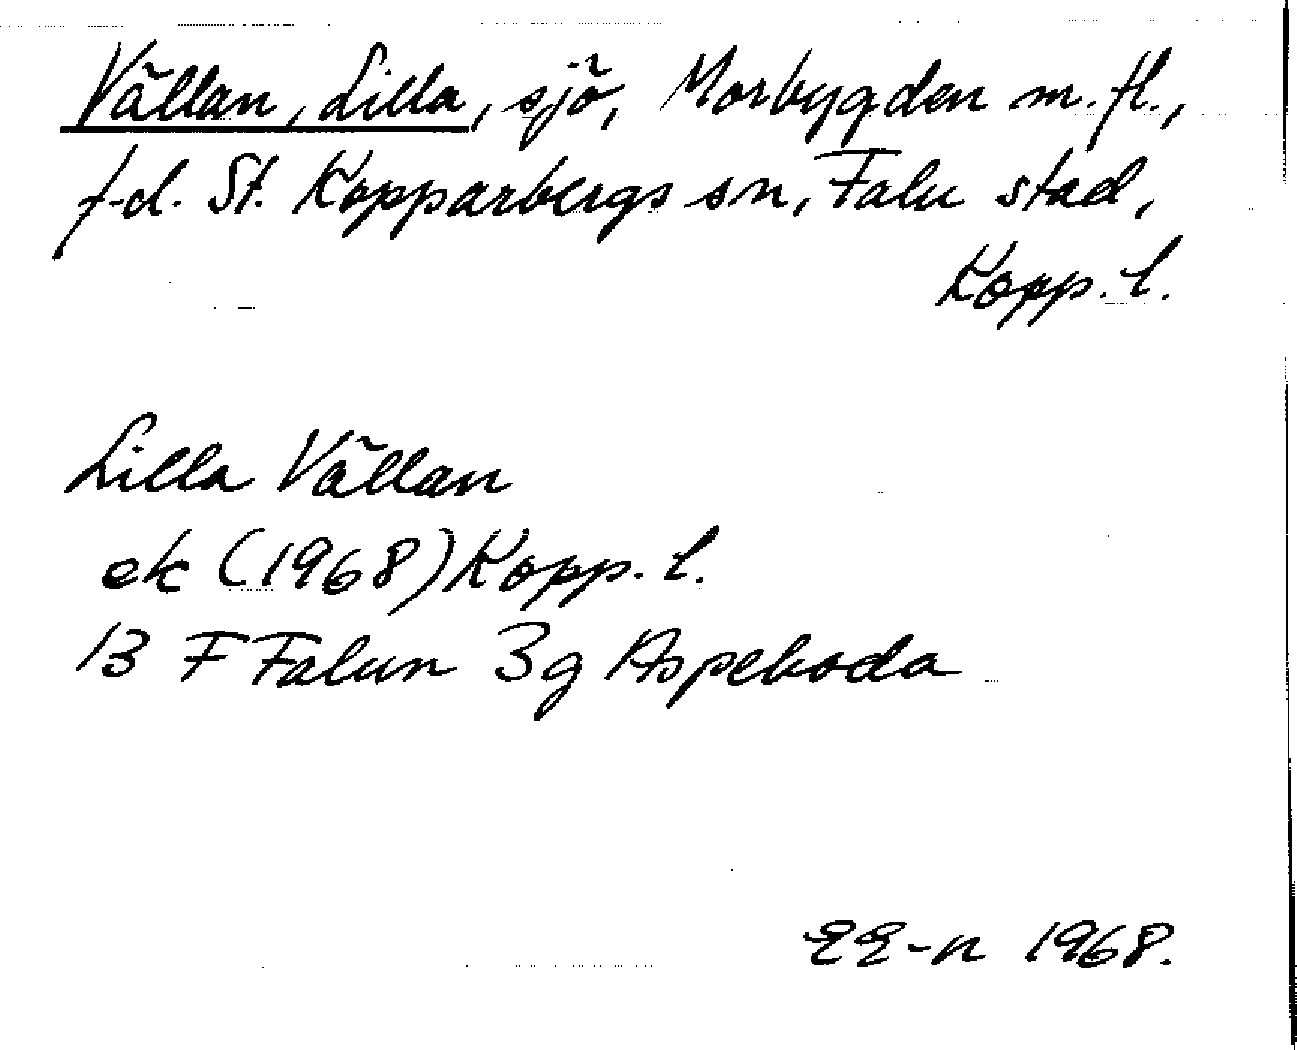 Vällan, Lilla, sjö, Morbygden m.fl.,
f.d. St. Kopparbergs sn, Falu stad,
Kopp. l.
Lilla Vällan
ek (1968) Kopp. l.
13 F Falun 3g Aspeboda
EE-n 1968.